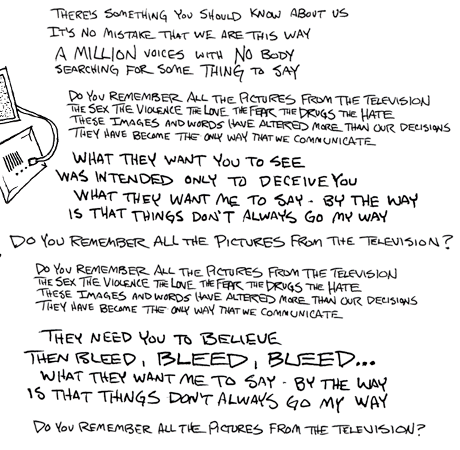 THERE'S SOMETHING YOU SHOULD KNOW ABOUT US
IT'S NO MISTAKE THAT WE ARE THIS WAY
A MILLION VOICES WITH NO BODY
SEARCHING FOR SOME THING TO SAY
DO YOU REMEMBER ALL THE PICTURES FROM THE TELEVISION
THE SEX THE VIOLENCE THE LOVE THE FEAR THE DRUGS THE HATE
THESE IMAGES AND WORDS HAVE ALTERED MORE THAN OUR DECISIONS
THEY HAVE BECOME THE ONLY WAY THAT WE COMMUNICATE
WHAT THEY WANT YOU TO SEE
WAS INTENDED ONLY TO DECEIVE YOU
WHAT THEY WANT ME TO SAY - BY THE WAY
IS THAT THINGS DON'T ALWAYS GO MY WAY
DO YOU REMEMBER ALL THE PICTURES FROM THE TELEVISION?
DO YOU REMEMBER ALL THE PICTURES FROM THE TELEVISION
THE SEX THE VIOLENCE THE LOVE THE FEAR THE DRUGS THE HATE
THESE IMAGES AND WORDS HAVE ALTERED MORE THAN OUR DECISIONS
THEY HAVE BECOME THE ONLY WAY THAT WE COMMUNICATE
THEY NEED YOU TO BELIEVE
THEN BLEED, BLEED, BLEED...
WHAT THEY WANT ME TO SAY - BY THE WAY
IS THAT THINGS DON'T ALWAYS GO MY WAY
DO YOU REMEMBER ALL THE PICTURES FROM THE TELEVISION?